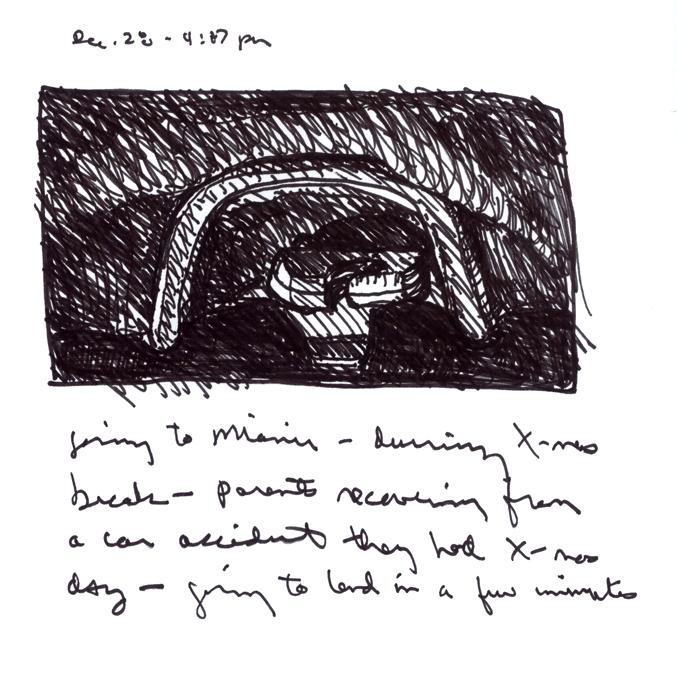 Dec. 28 - 4:17 pm
going to Miami - during X-mas
break - parents recovering from
a car accident they had X-mas
day - going to land in a few minutes